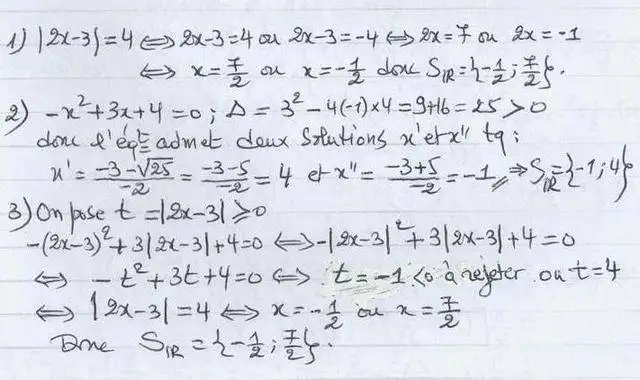 1) |2x-3|=4 ⟺ 2x-3=4 ou 2x-3=-4 ⟺ 2x=7 ou 2x=-1
⟺ x=7/2 ou x=-1/2 donc S_IR={-1/2;7/2}.
2) -x²+3x+4=0; Δ=3²-4(-1)×4=9+16=25>0
donc l'éqt admet deux solutions x' et x'' tq:
x'=(-3-√25)/-2=(-3-5)/-2=4 et x''=(-3+5)/-2=-1 ⇒ S_IR={-1;4}
3) On pose t=|2x-3|≥0
-(2x-3)²+3|2x-3|+4=0 ⟺ -|2x-3|²+3|2x-3|+4=0
⟺ -t²+3t+4=0 ⟺ t=-1<0 à rejeter ou t=4
⟺ |2x-3|=4 ⟺ x=-1/2 ou x=7/2
Donc S_IR={-1/2;7/2}.